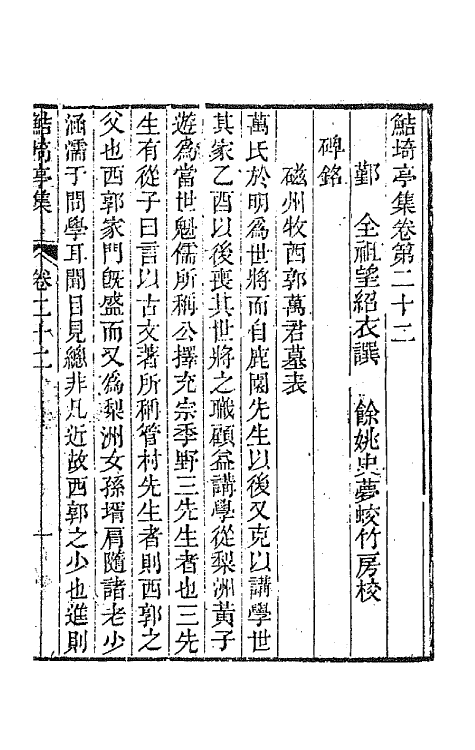 鮚埼亭集卷第二十二
鄞 全祖望紹衣譔 餘姚史夢蛟竹房校
碑銘
磁州牧西郭萬君墓表
萬氏於明為世將而自鹿園先生以後又克以講學世
其家乙酉以後喪其世將之職顧益講學從梨洲黃子
遊為當世魁儒所稱公擇充宗季野三先生者也三先
生有從子曰言以古文著所稱管村先生者則西郭之
父也西郭家門旣盛而又為梨洲女孫壻肩隨諸老少
涵濡于問學耳聞目見總非凡近故西郭之少也進則
鮚埼亭集 卷二十二 一